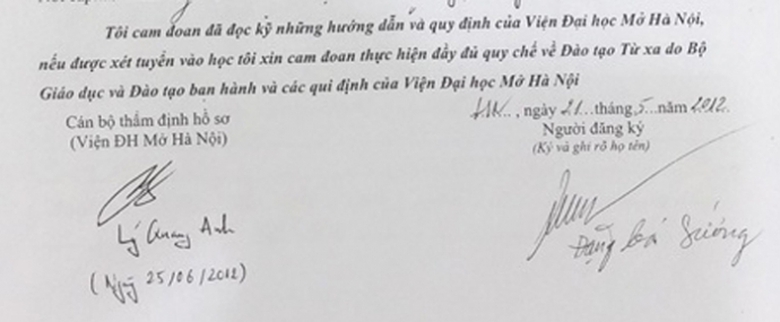 Tôi cam đoan đã đọc kỹ những hướng dẫn và quy định của Viện Đại học Mở Hà Nội,
nếu được xét tuyển vào học tôi xin cam đoan thực hiện đầy đủ quy chế về Đào tạo Từ xa do Bộ
Giáo dục và Đào tạo ban hành và các qui định của Viện Đại học Mở Hà Nội
Cán bộ thẩm định hồ sơ
(Viện ĐH Mở Hà Nội)
..., ngày 21...tháng.5..năm 2012.
Người đăng ký
(Ký và ghi rõ họ tên)
Lý Quang Anh
(Ngày 25/06/2012)
Đặng Bá Sướng